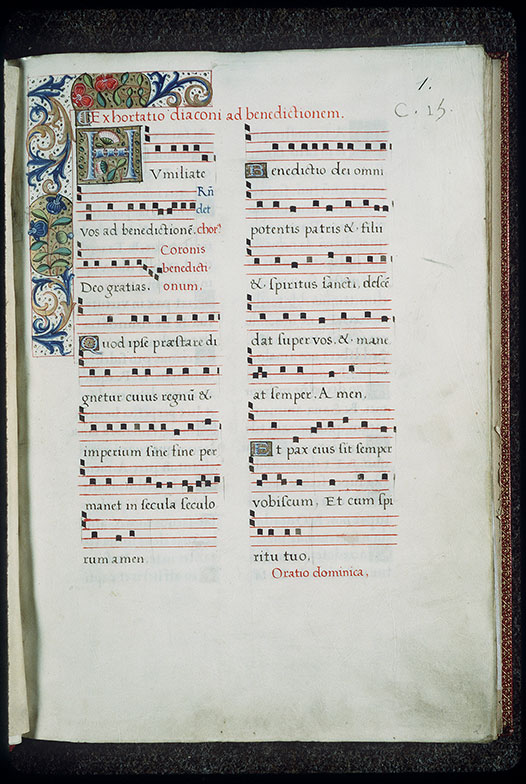 1.
C. 15.
Exhortatio diaconi ad benedictionem.
HVmiliate
Rñ
det
vos ad benedictionẽ. chorꝰ
Coronis
Deo gratias. benedicti
onum.
Quod ipse præstare di
gnetur cuius regnũ &
imperium sine fine per
manet in secula seculo
rum amen
Benedictio dei omni
potentis patris & filii
& spiritus sancti. descẽ
dat super vos. & mane
at semper. Amen.
Et pax eius sit semper
vobiscum. Et cum spi
ritu tuo.
Oratio dominica.